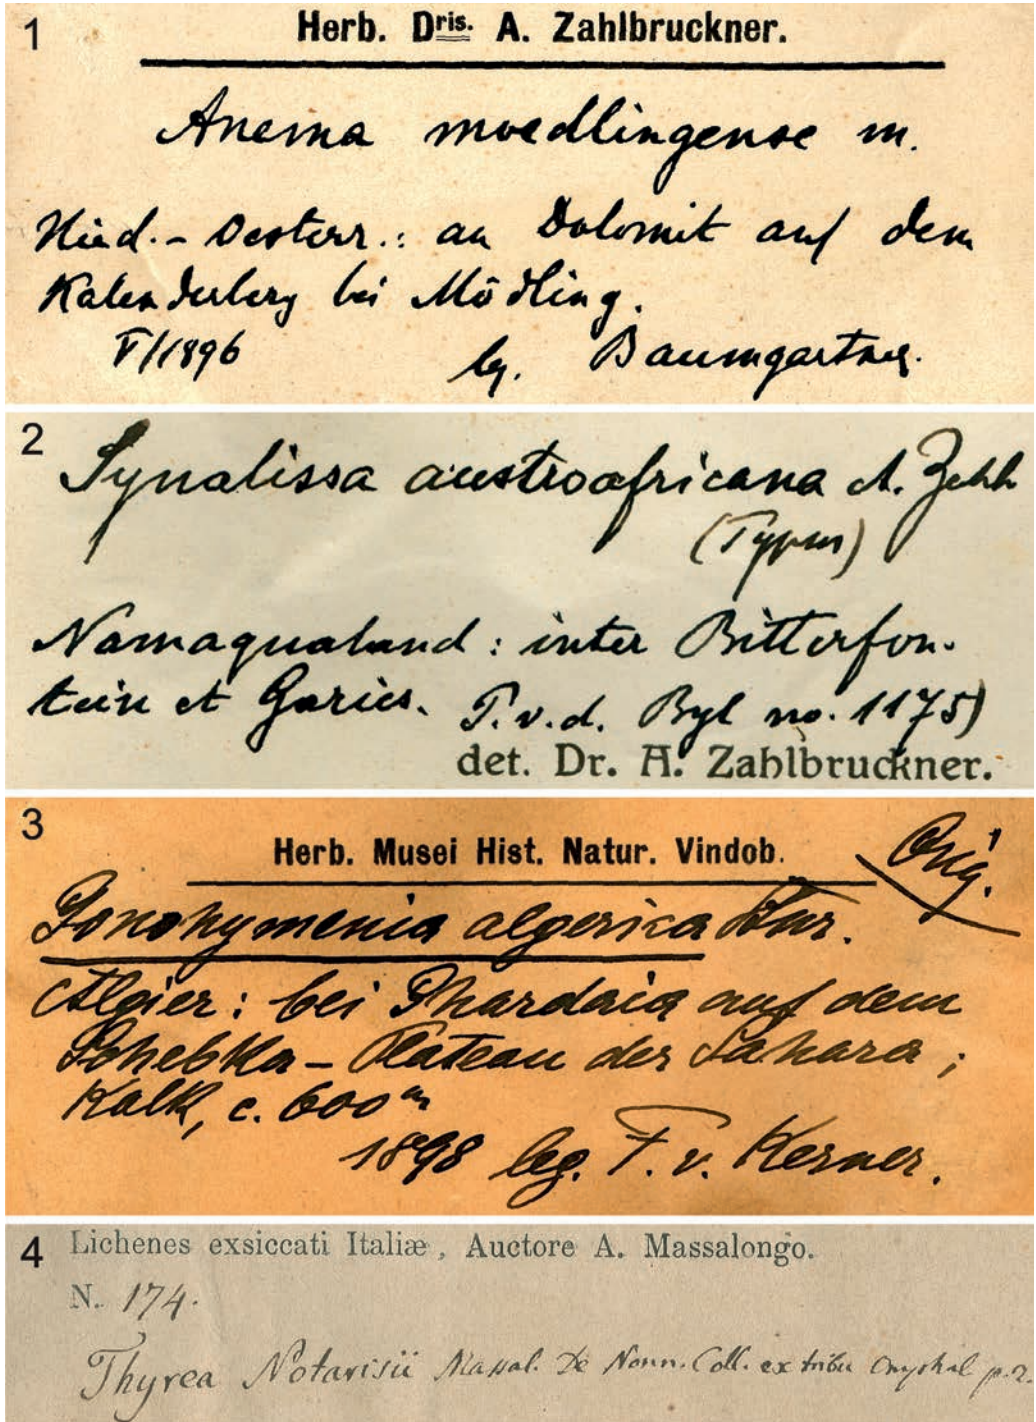 1
Herb. Dris. A. Zahlbruckner.
Anema moedlingense m.
Nied.-Oesterr.: an Dolomit auf dem
Kalenderberg bei Mödling.
V/1896
lg. Baumgartner.
2
Synalissa austroafricana A. Zahlb
(Typus)
Namaqualand: inter Bitterfon-
tein et Garies. P.v.d. Byl no. 1175)
det. Dr. A. Zahlbruckner.
3
Herb. Musei Hist. Natur. Vindob.
Orig.
Gonohymenia algerica Stnr.
Algier: bei Ghardaia auf dem
Schebka-Plateau der Sahara;
Kalk, c. 600 m
1898 leg. F. v. Kerner.
4
Lichenes exsiccati Italiæ, Auctore A. Massalongo.
N. 174.
Thyrea Notarisii Massal. De Nonn. Coll. ex tribu p. 2.